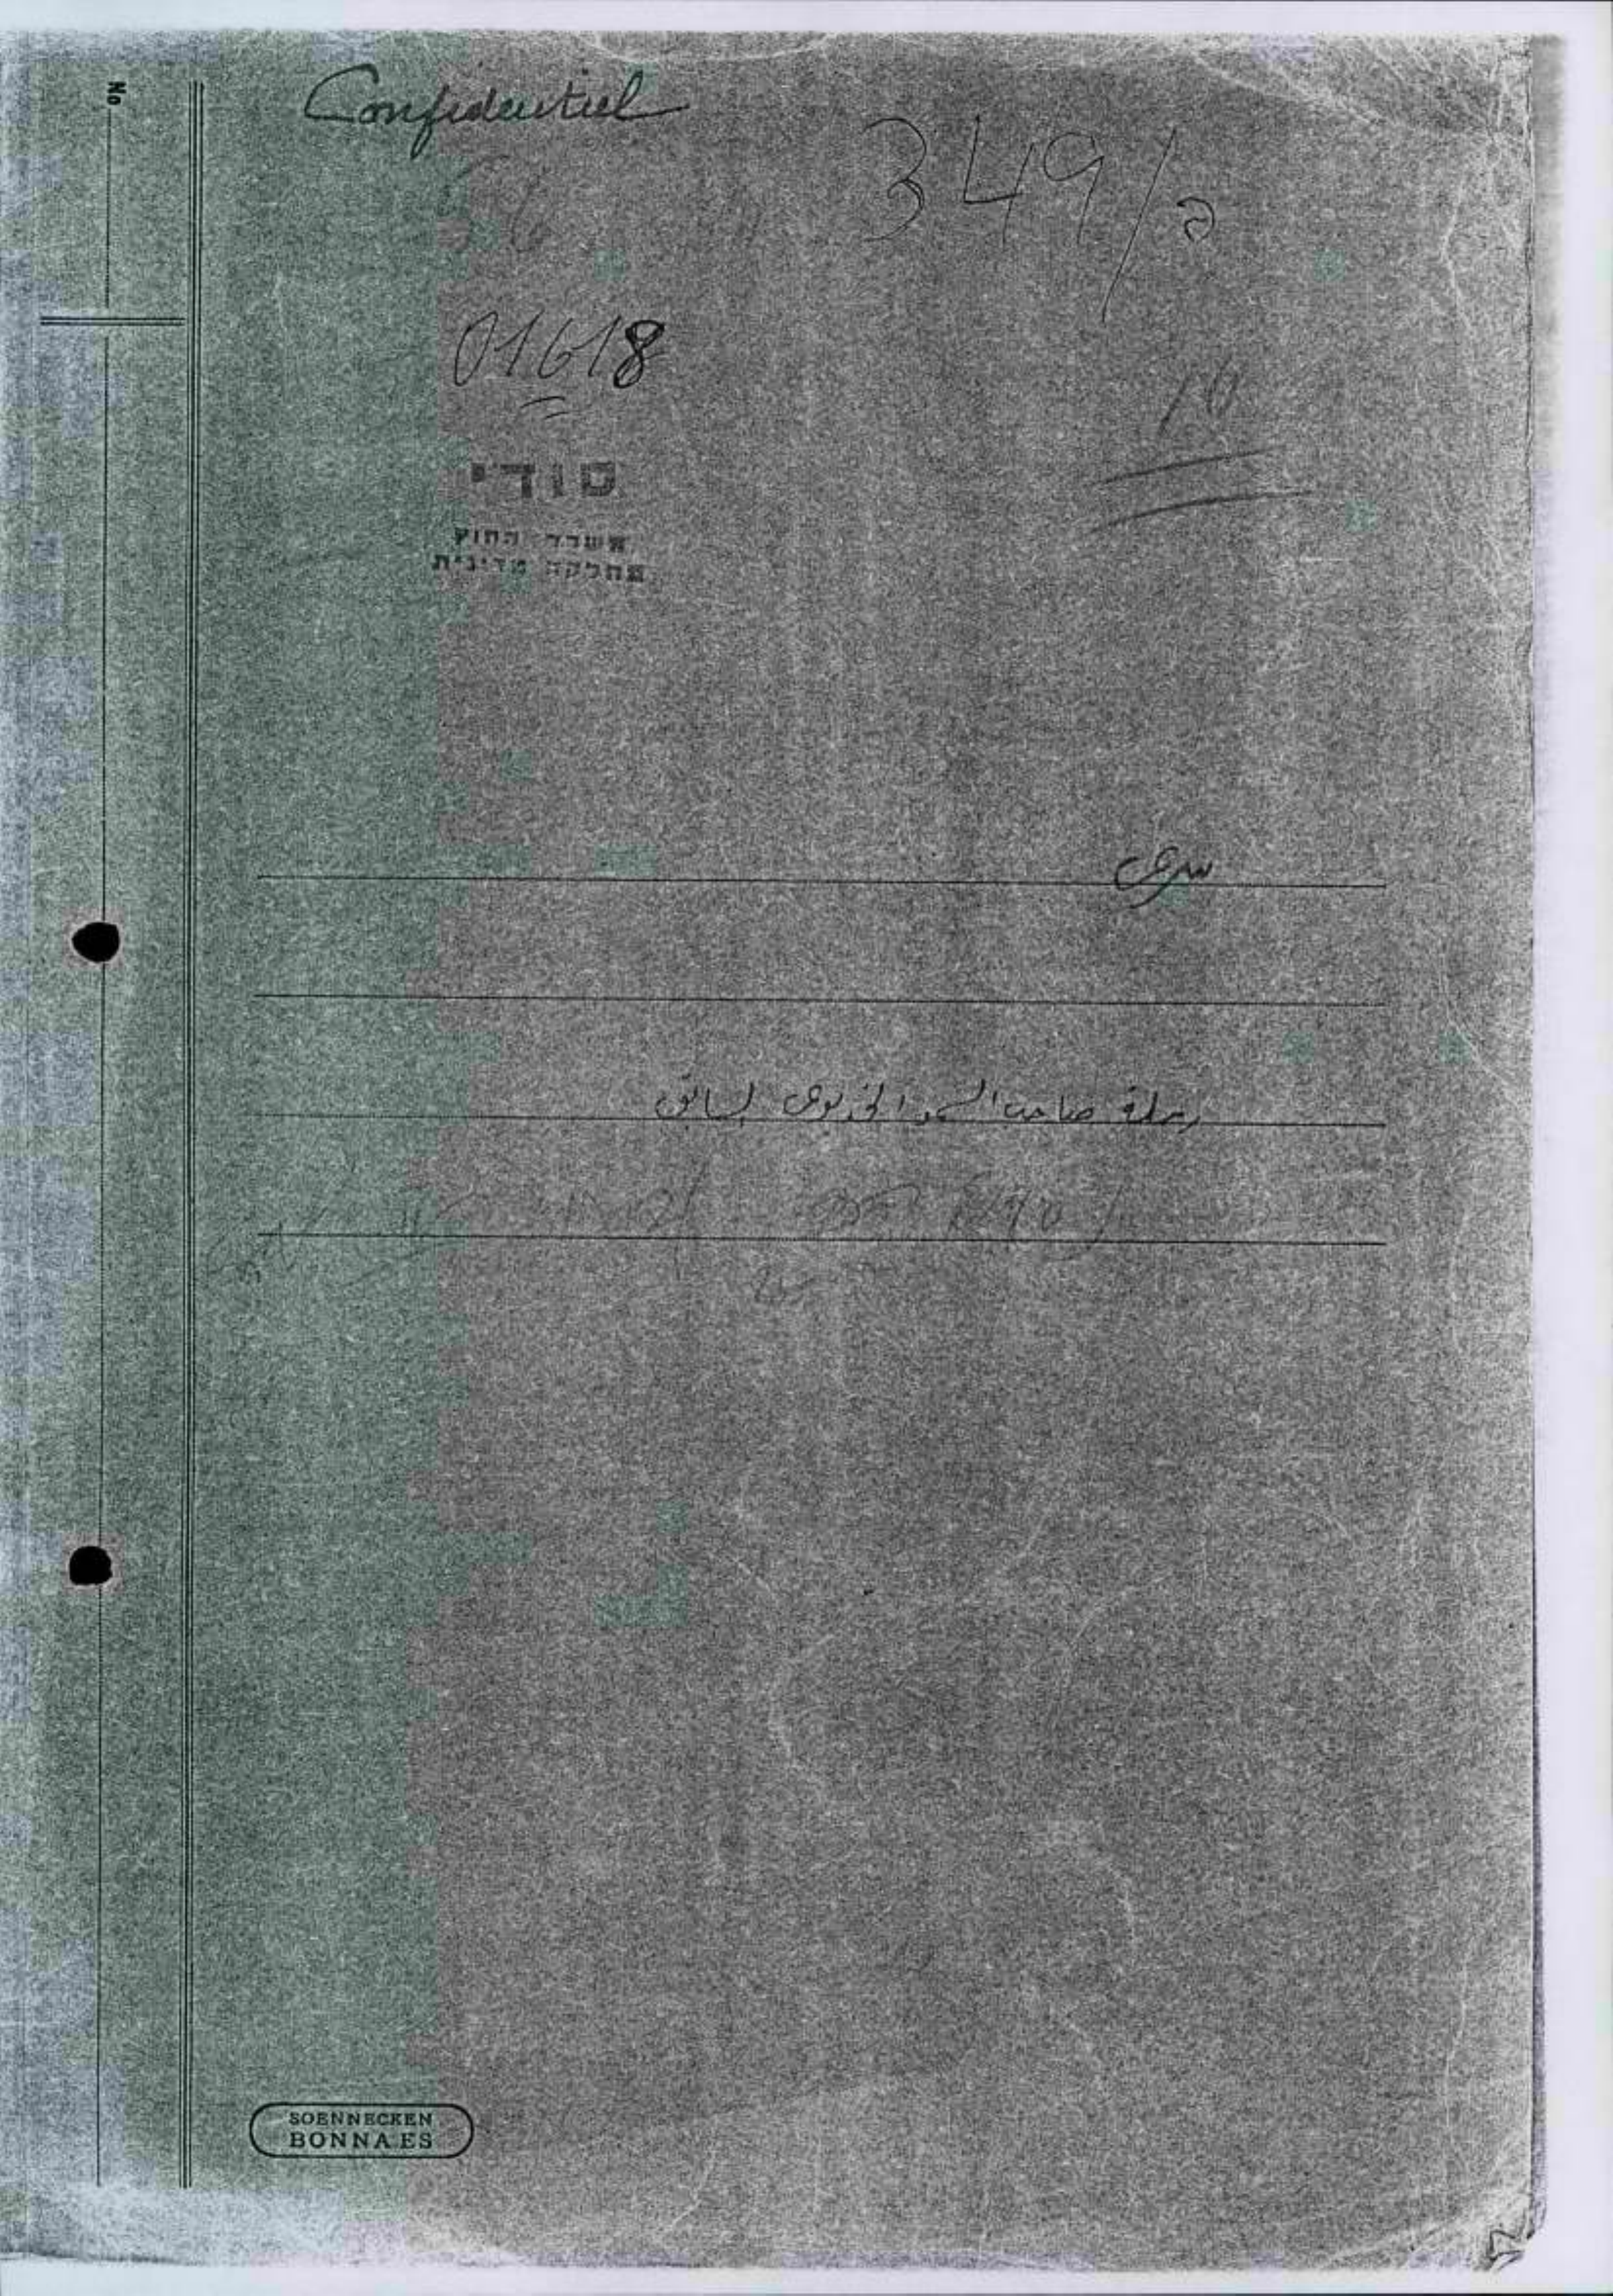 No
Confidentiel
349/ב
01618
10
סודי
משרד החוץ
מחלקה מדינית
سرى
رحلة صاحب السمو الخديوى السابق
SOENNECKEN
BONNA.ES